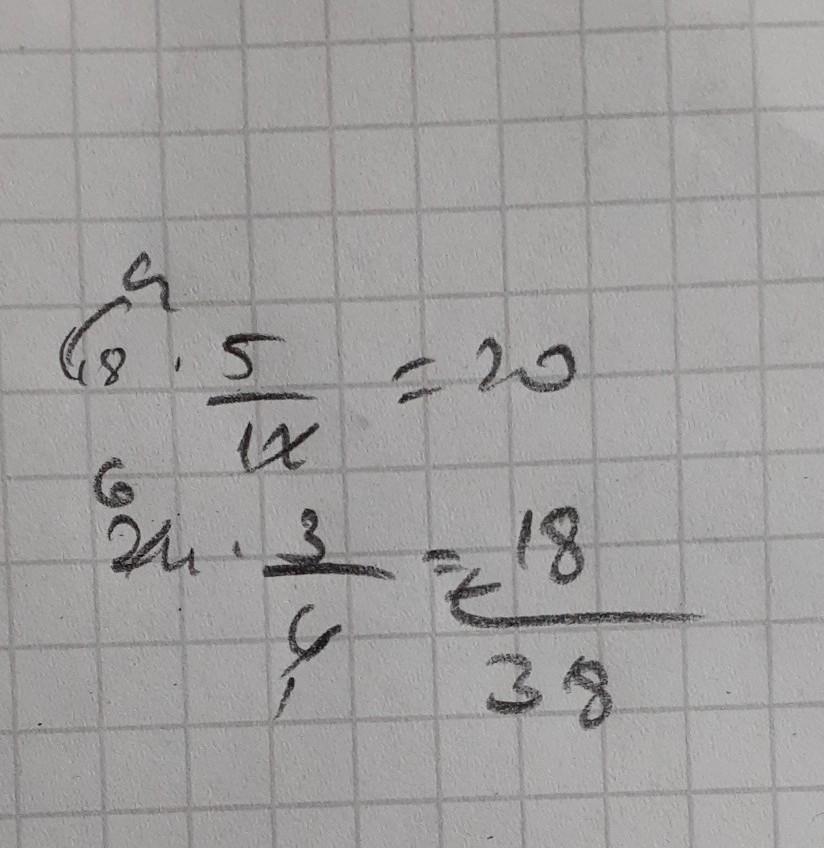 4
48 . 5/12 = 20
6
24 . 3/4 = + 18
1
38